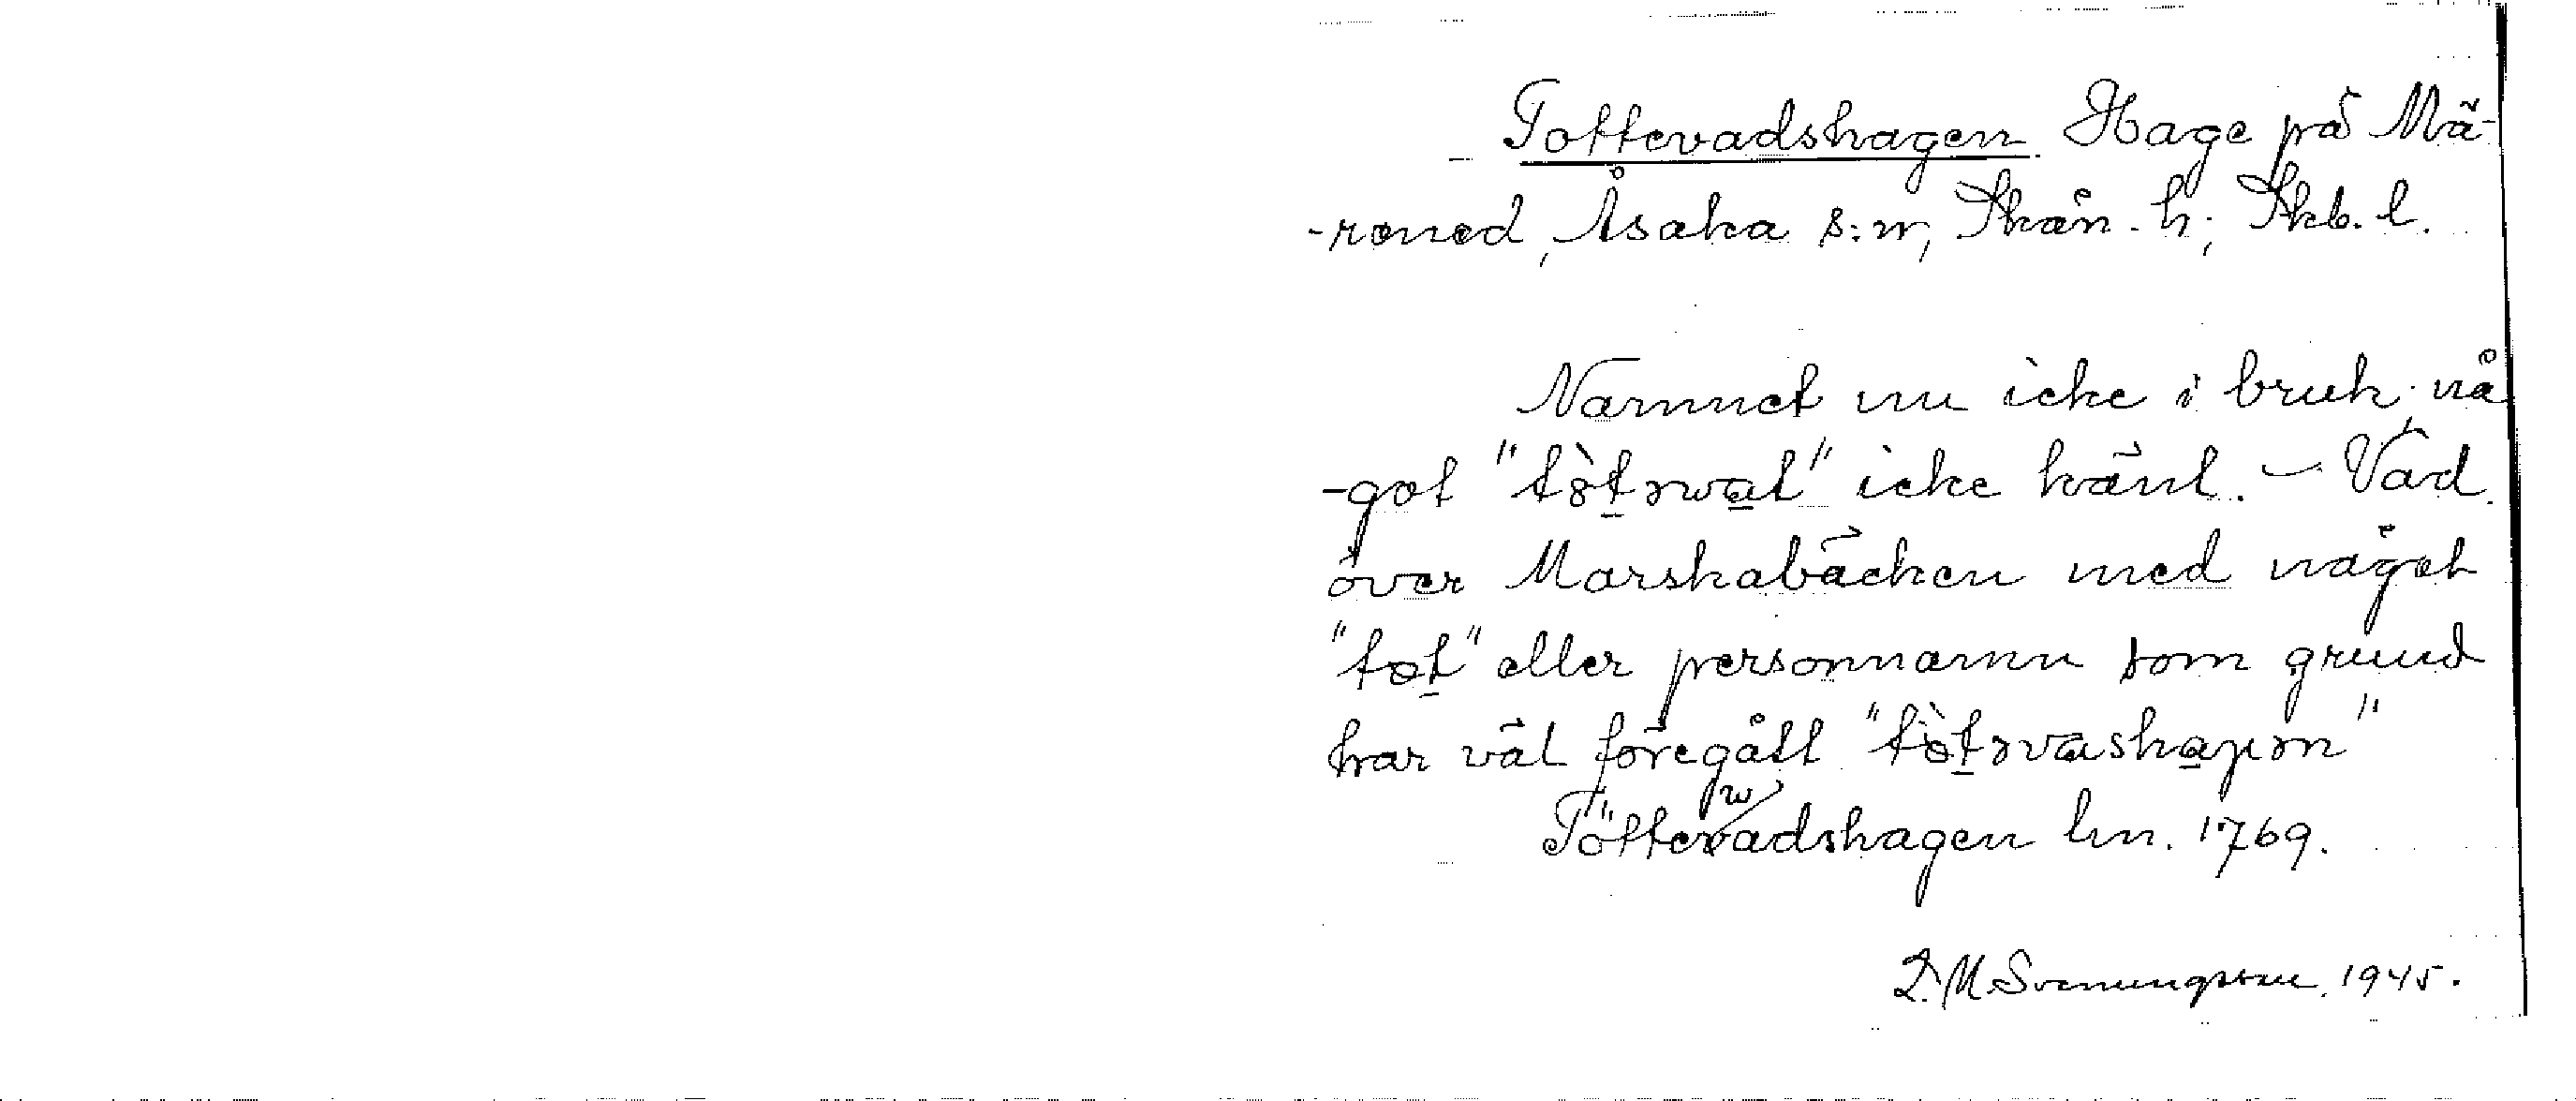 Tottevadshagen. Hage på Mä-
-rened, Åsaka s:n, Skån. h., Skb. l.
Namnet nu icke i bruk, nå
-got "tòtəwat" icke känt. – Vad
över Marskabäcken med något
"tot" eller personnamn som grund
har väl föregått "tòtəvashaɡən"
Töttewadshagen lm. 1769.
D. M. Svenungsson. 1945.